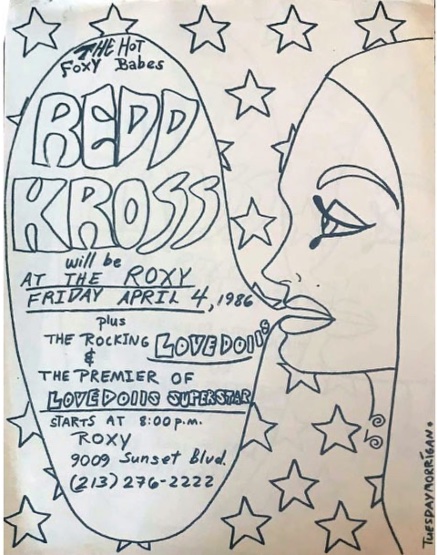 THE HOT
FOXY BABES
REDD
KROSS
will be
AT THE ROXY
FRIDAY APRIL 4, 1986
plus
THE ROCKING LOVEDOllS
&
THE PREMIER OF
LOVEDOllS SUPERSTAR
STARTS AT 8:00 p.m.
ROXY
9009 Sunset Blvd.
(213) 276-2222
TUESDAYMORRIGAN.